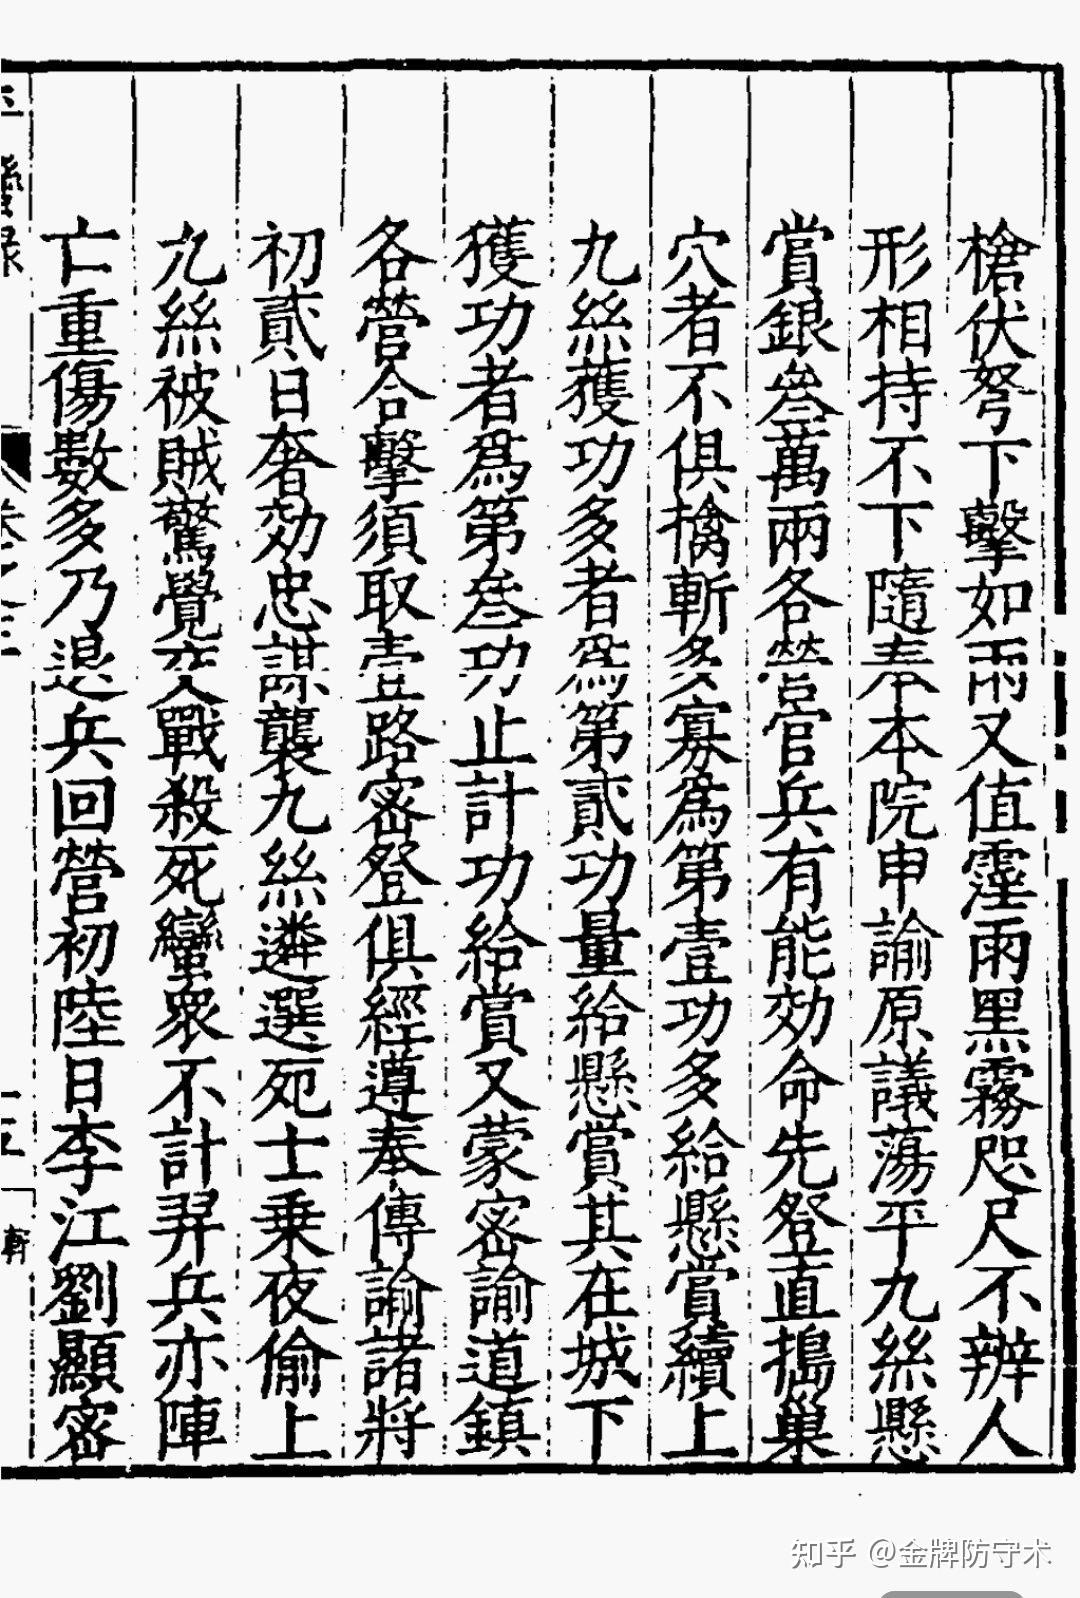 槍伏弩下擊如雨又值霪雨黑霧咫尺不辨人
形相持不下隨奉本院申諭原議蕩平九絲懸
賞銀叄萬兩各營官兵有能効命先登直搗巢
穴者不俱擒斬多寡為第壹功多給懸賞續上
九絲獲功多者為第貳功量給懸賞其在城下
獲功者為第叄功止計功給賞又蒙密諭道鎮
各營合擊須取壹路密登俱經遵奉傳諭諸將
初貳日奢効忠謀襲九絲遴選死士乗夜偷上
九絲被賊驚覺交戰殺死蠻衆不計羿兵亦陣
亡重傷數多乃退兵回營初陸日李江劉顯密
平蠻録
卷之三
十五
知乎 @金牌防守术